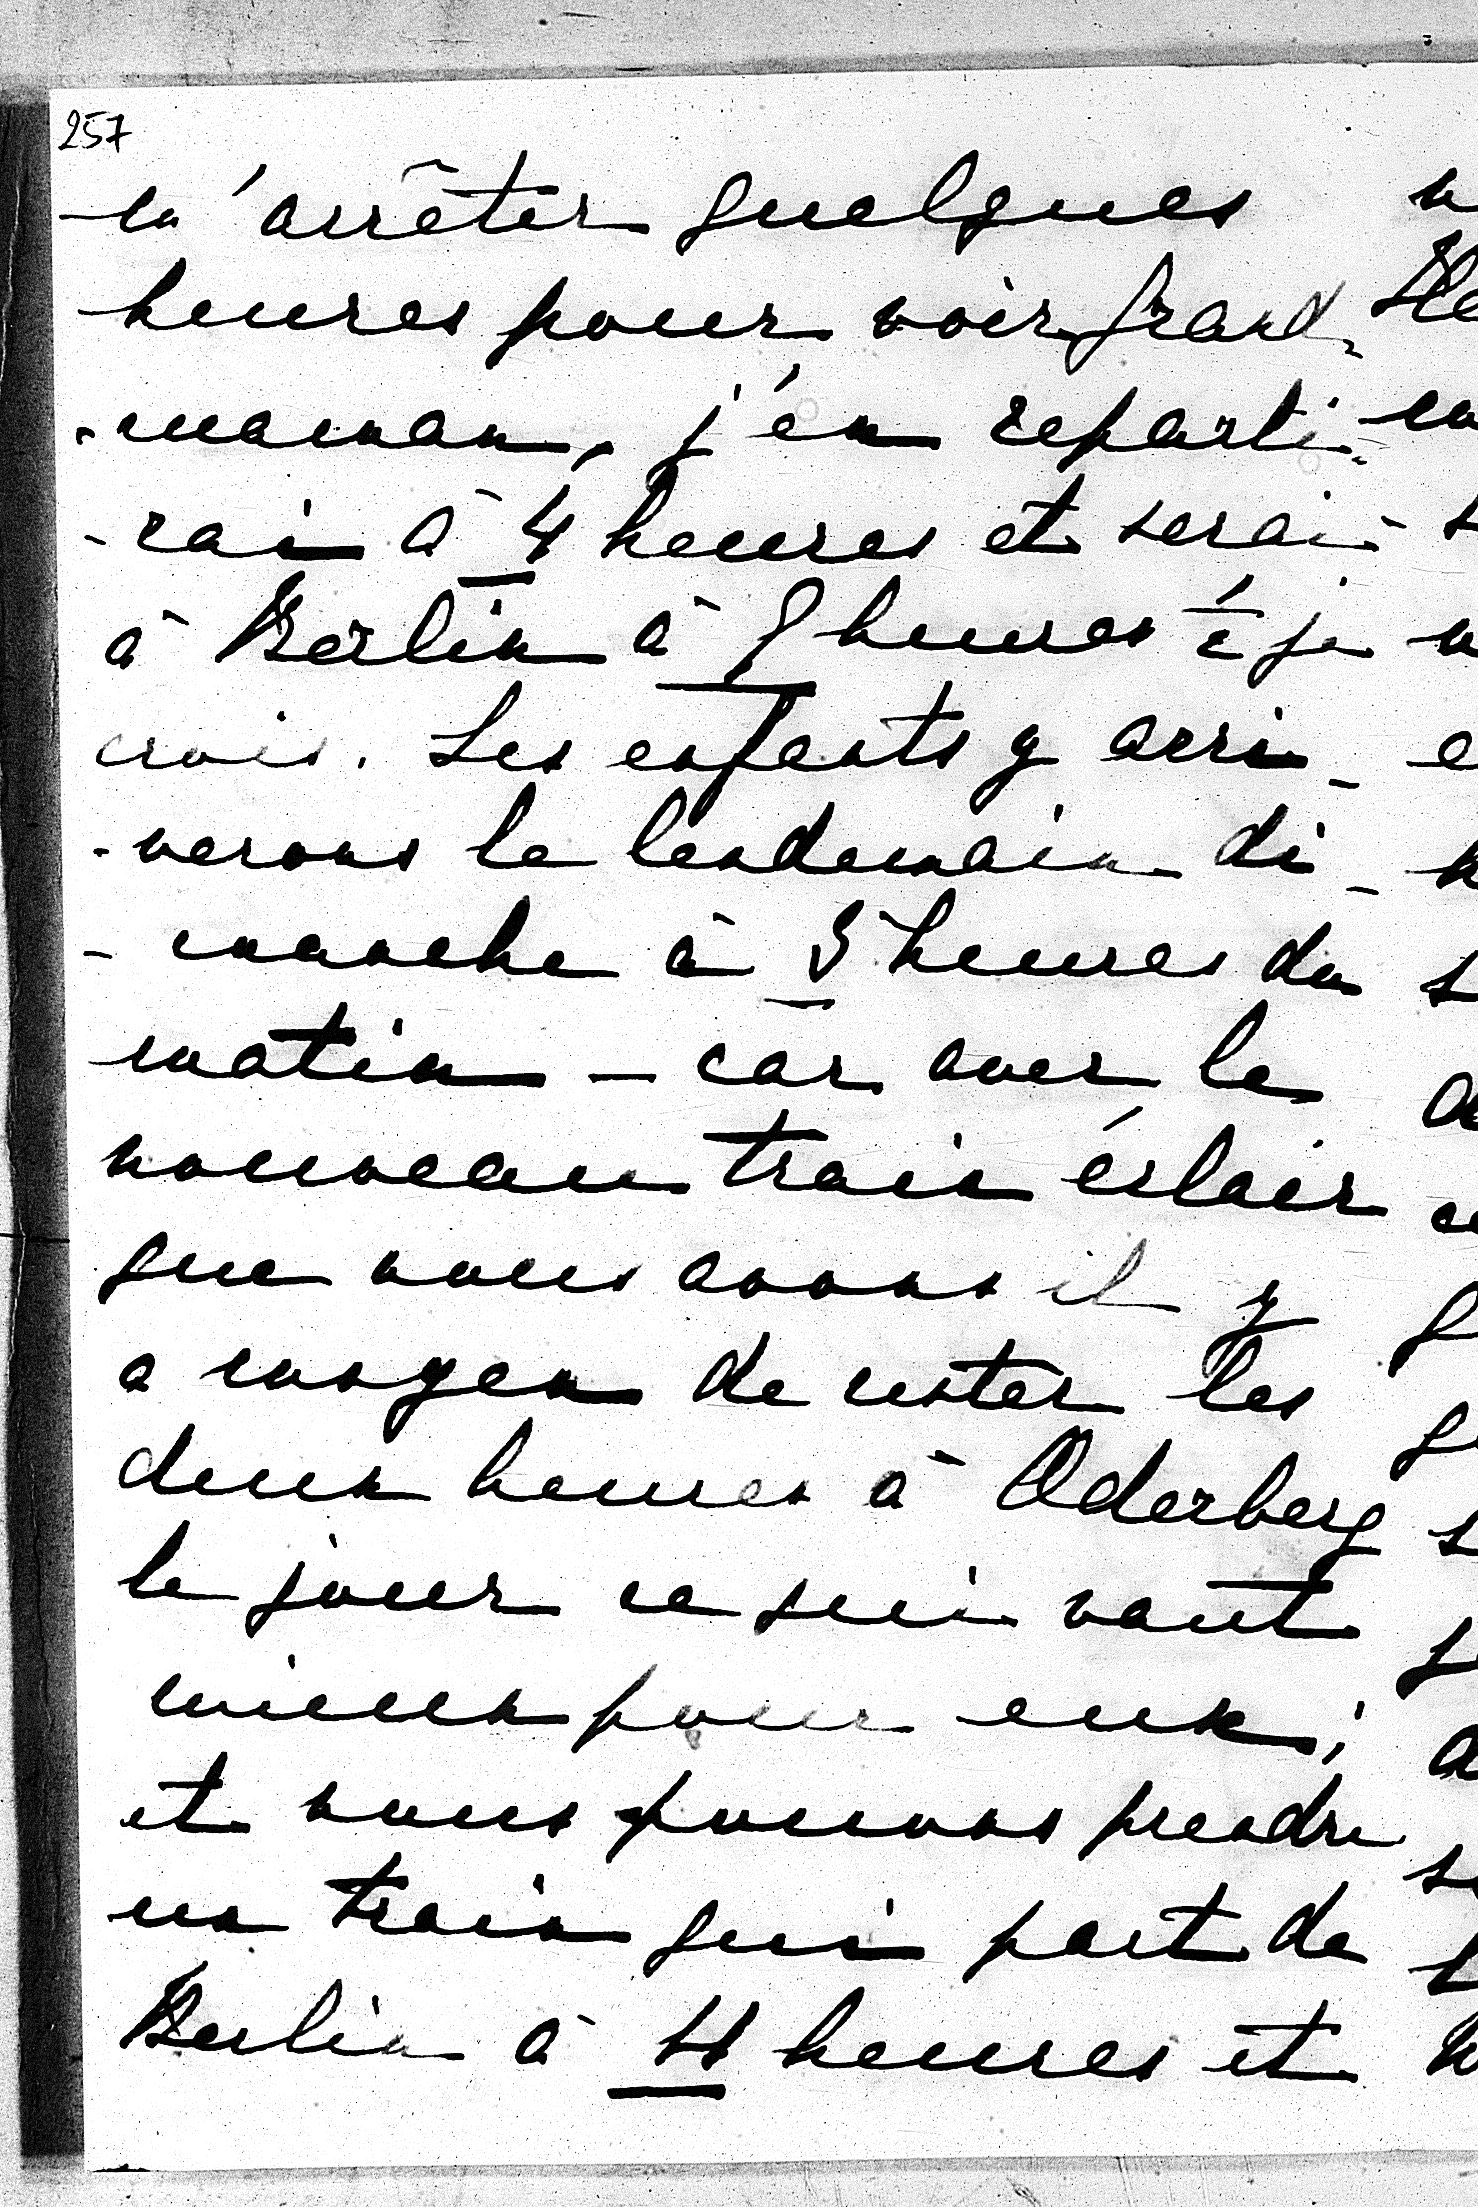 257
m'arrêter quelques
heures pour voir Grand-
-maman, j'en reparti-
-rai à 4 heures et serai
à Berlin à 9 heures ½ je
crois. Les enfants y arri-
-verons le lendemain di-
-manche à 5 heures du
matin – car avec le
nouveau train éclair
que nous avons il y
a moyen de rester les
deux heures à Oderberg
le jour ce qui vaut
mieux pour eux ;
et nous pouvons prendre
un train qui part de
Berlin à 4 heures et